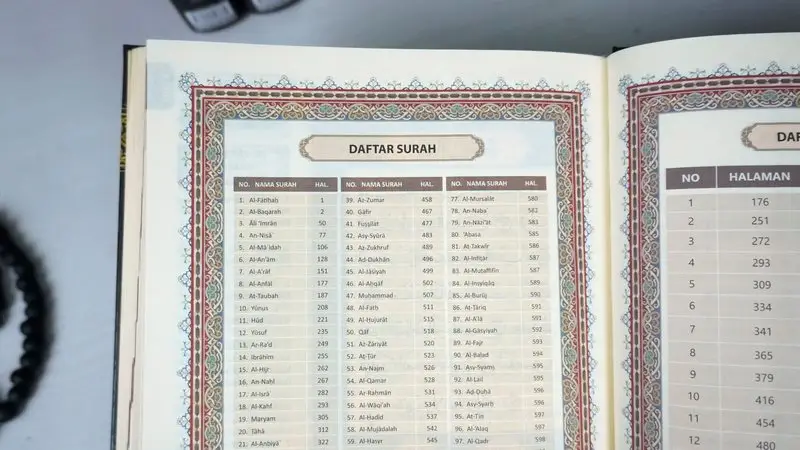 DAFTAR SURAH
NO. NAMA SURAH HAL.
1. Al-Fātiḥah 1
2. Al-Baqarah 2
3. Āli 'Imrān 50
4. An-Nisā' 77
5. Al-Mā'idah 106
6. Al-An'ām 128
7. Al-A'rāf 151
8. Al-Anfāl 177
9. At-Taubah 187
10. Yūnus 208
11. Hūd 221
12. Yūsuf 235
13. Ar-Ra'd 249
14. Ibrāhīm 255
15. Al-Ḥijr 262
16. An-Naḥl 267
17. Al-Isrā' 282
18. Al-Kahf 293
19. Maryam 305
20. Ṭāhā 312
21. Al-Anbiyā' 322
NO. NAMA SURAH HAL.
39. Az-Zumar 458
40. Gāfir 467
41. Fuṣṣilat 477
42. Asy-Syūrā 483
43. Az-Zukhruf 489
44. Ad-Dukhān 496
45. Al-Jāṡiyah 499
46. Al-Aḥqāf 502
47. Muḥammad 507
48. Al-Fatḥ 511
49. Al-Ḥujurāt 515
50. Qāf 518
51. Aż-Żāriyāt 520
52. Aṭ-Ṭūr 523
53. An-Najm 526
54. Al-Qamar 528
55. Ar-Raḥmān 531
56. Al-Wāqi'ah 534
57. Al-Ḥadīd 537
58. Al-Mujādalah 542
59. Al-Ḥasyr 545
NO. NAMA SURAH HAL.
77. Al-Mursalāt 580
78. An-Naba' 582
79. An-Nāzi'āt 583
80. 'Abasa 585
81. At-Takwīr 586
82. Al-Infiṭār 587
83. Al-Muṭaffifīn 587
84. Al-Insyiqāq 589
85. Al-Burūj 590
86. Aṭ-Ṭāriq 591
87. Al-A'lā 591
88. Al-Gāsyiyah 592
89. Al-Fajr 593
90. Al-Balad 594
91. Asy-Syams 595
92. Al-Lail 595
93. Aḍ-Ḍuḥā 596
94. Asy-Syarḥ 596
95. At-Tīn 597
96. Al-'Alaq 597
97. Al-Qadr 598
DAF
NO HALAMAN
1 176
2 251
3 272
4 293
5 309
6 334
7 341
8 365
9 379
10 416
11 454
12 480